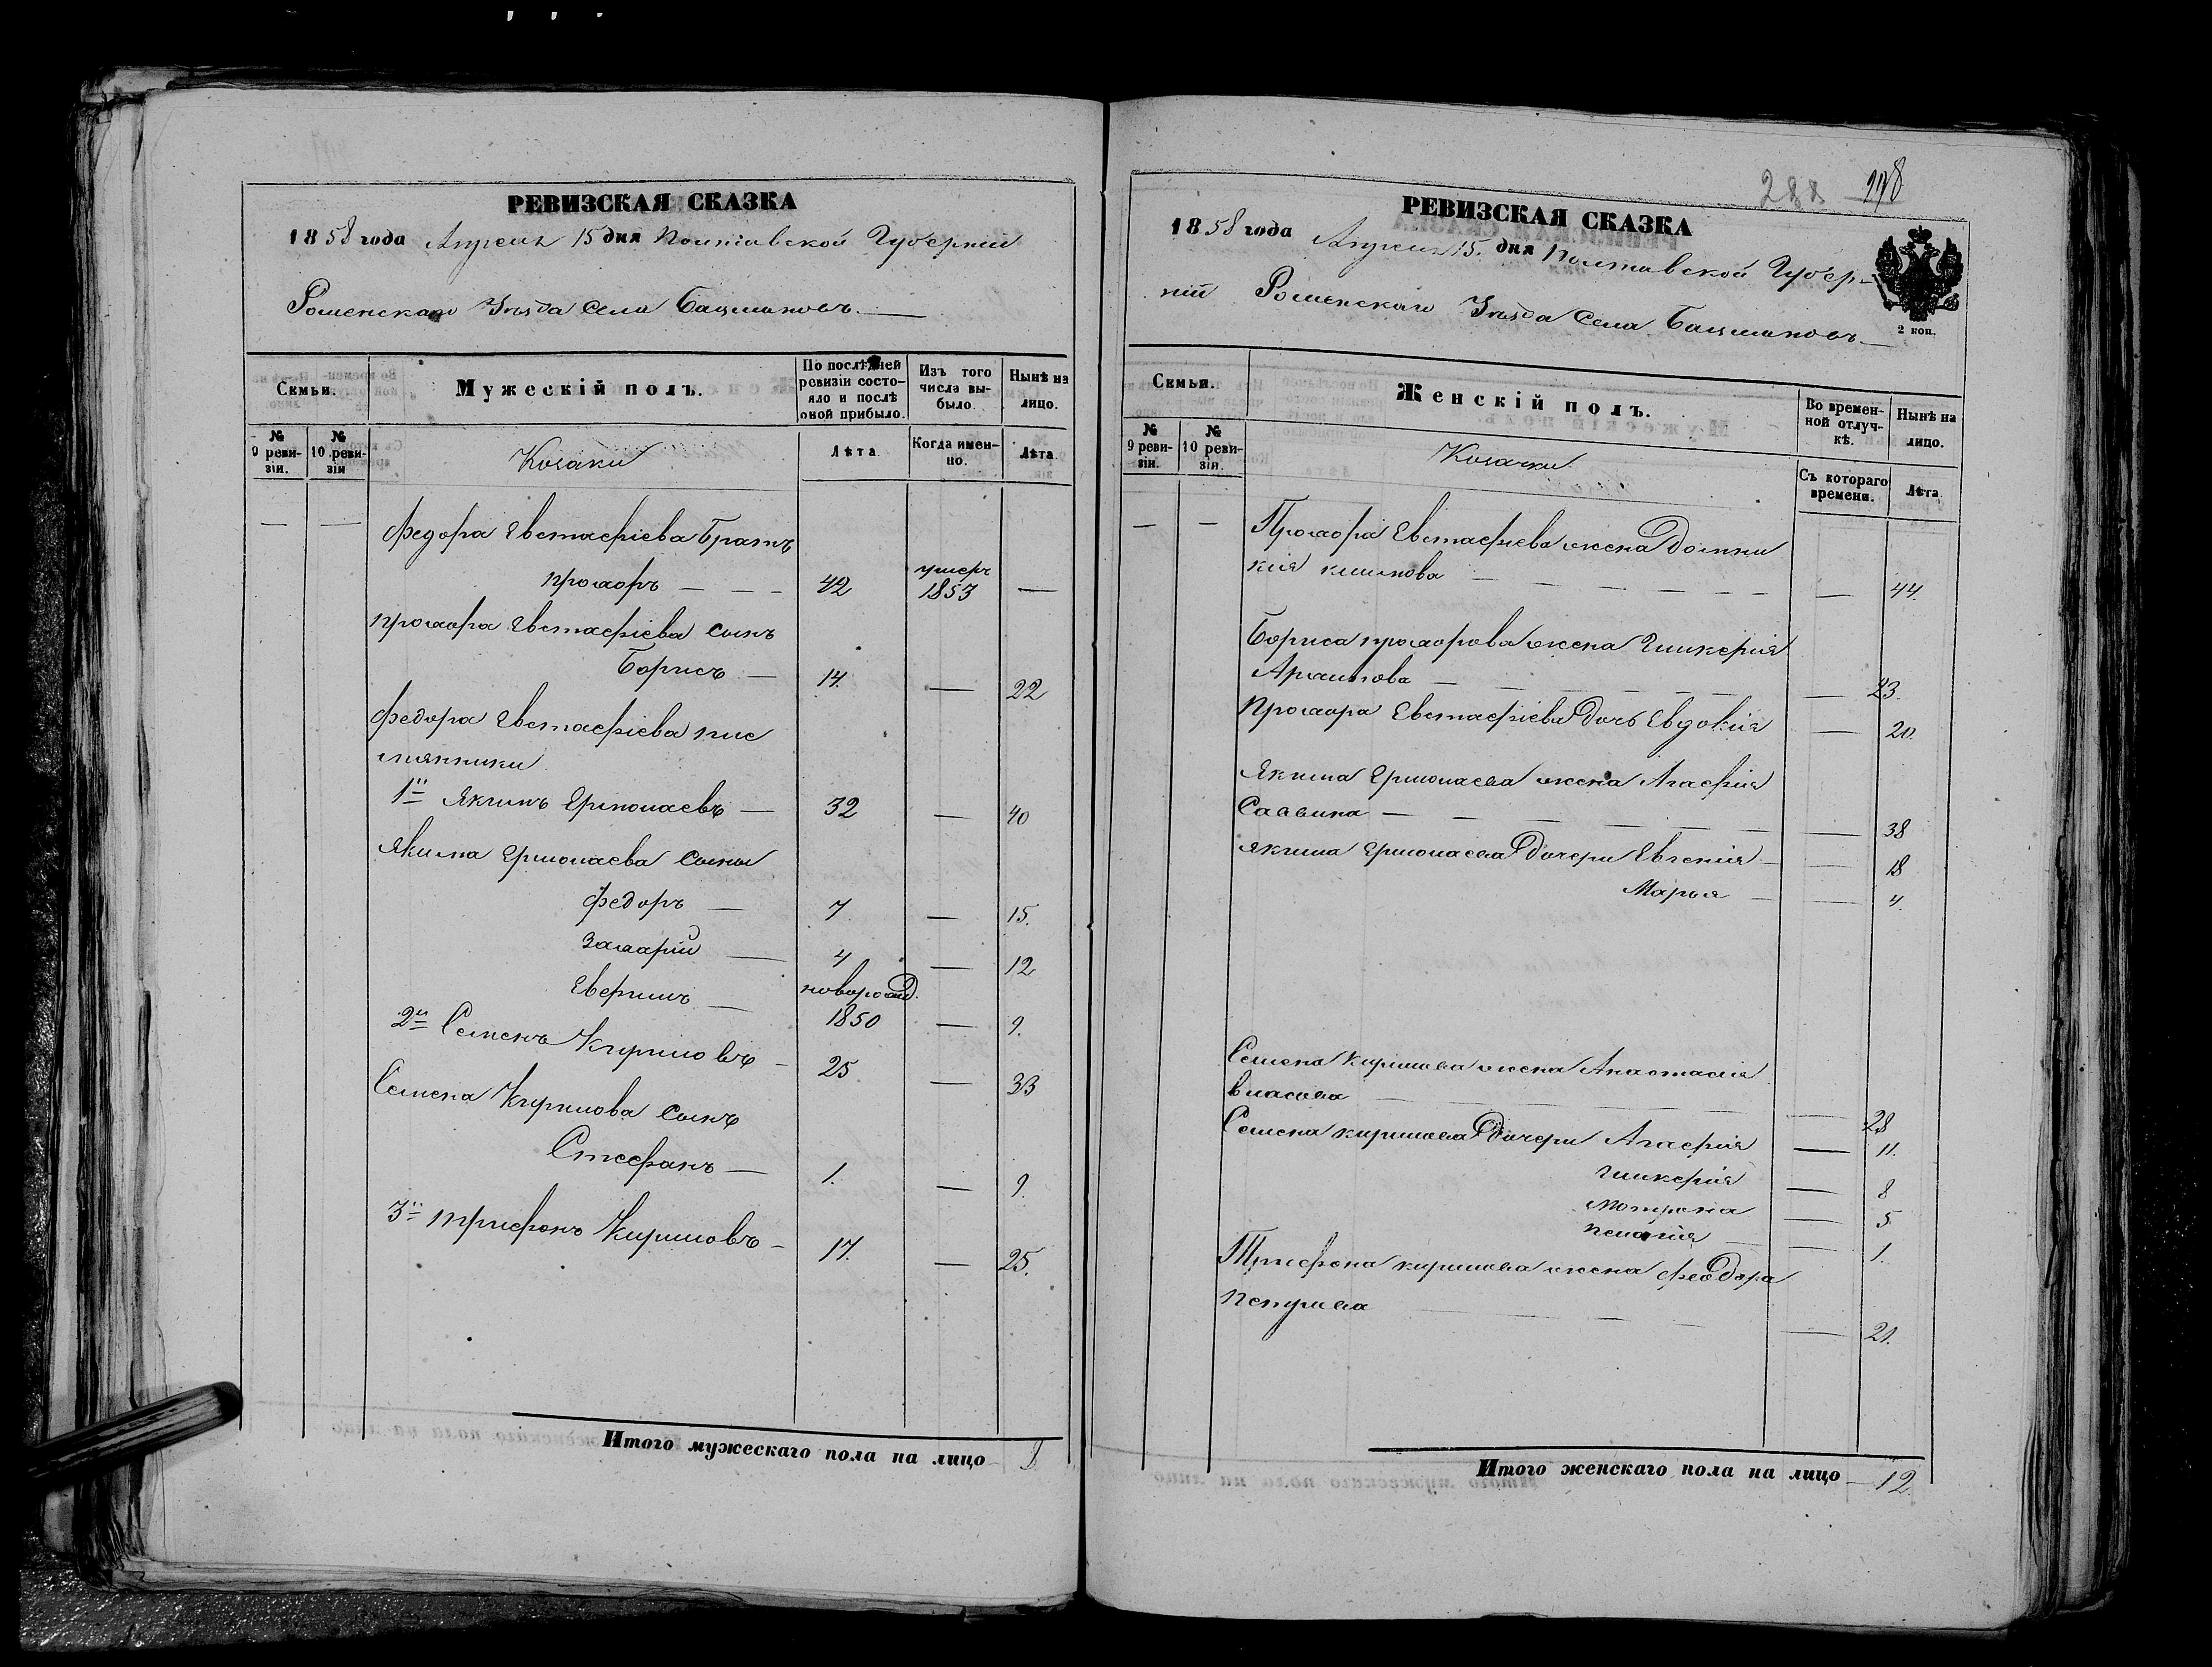 РЕВИЗСКАЯ СКАЗКА
1858 года Апреля 15 дня Полтавской Губерніи
Роменскаго Уезда Села Бацмановъ.
Семьи.
Мужескій полъ.
По послѣдней ревизіи состояло и послѣ оной прибыло.
Изъ того числа выбыло.
Нынѣ на лицо.
№ 9 ревизіи.
№ 10 ревизіи
Козаки
Лѣта
Когда именно.
Лѣта.
— — Федора Евстафіева Братъ
Прохоръ — — — 42 умеръ 1853 —
Прохора Евстафіева сынъ
Борисъ — 14. — 22
Федора Евстафіева пле
мянники
1й Якимъ Ермолаевъ — 32 — 40
Якима Ермолаева сыны
Федоръ — 7 — 15.
Захарій — 4 — 12
новорожд. 1850 — 9.
2й Семенъ Кириловъ — 25 — 33
Семена Кирилова сынъ
Стефанъ — 1. — 9.
3й Трифонъ Кириловъ — 17. — 25.
Итого мужескаго пола на лицо 8
288 — 198
РЕВИЗСКАЯ СКАЗКА
1858 года Апреля 15. дня Полтавской Губер-
ніи Роменскаго Уезда Села Бацмановъ —
2 коп.
Семьи.
Женскій полъ.
Во временной отлучкѣ.
Нынѣ на лицо.
№ 9 ревизіи.
№ 10 ревизіи.
Козачки
Съ котораго времени.
Лѣта.
— — Прохора Евстафіева жена Домни
кія Климова — — — — — 44.
Бориса Прохорова жена Гликерія
Архипова — — — — — 23.
Прохора Евстафіева дочь Евдокія — 20.
Якима Ермолаева жена Агафія
Саввина — — — — — — 38
Якима Ермолаева дочери Евгенія — — 18
Марья — — 4.
Семена Кирилова жена Анастасія
Власова — — — — — 28
Семена Кирилова дочери Агафія — 11.
Гликерія — 8
Мотрона — 5.
Пелагія — — 1.
Трифона Кирилова жена Феодора
Петрова — — — — 21.
Итого женскаго пола на лицо — 12.